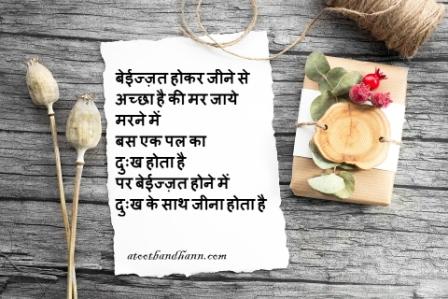 बेईज्ज़त होकर जीने से
अच्छा है की मर जाये
मरने में
बस एक पल का
दुःख होता है
पर बेईज्ज़त होने में
दुःख के साथ जीना होता है
atootbandhann.com